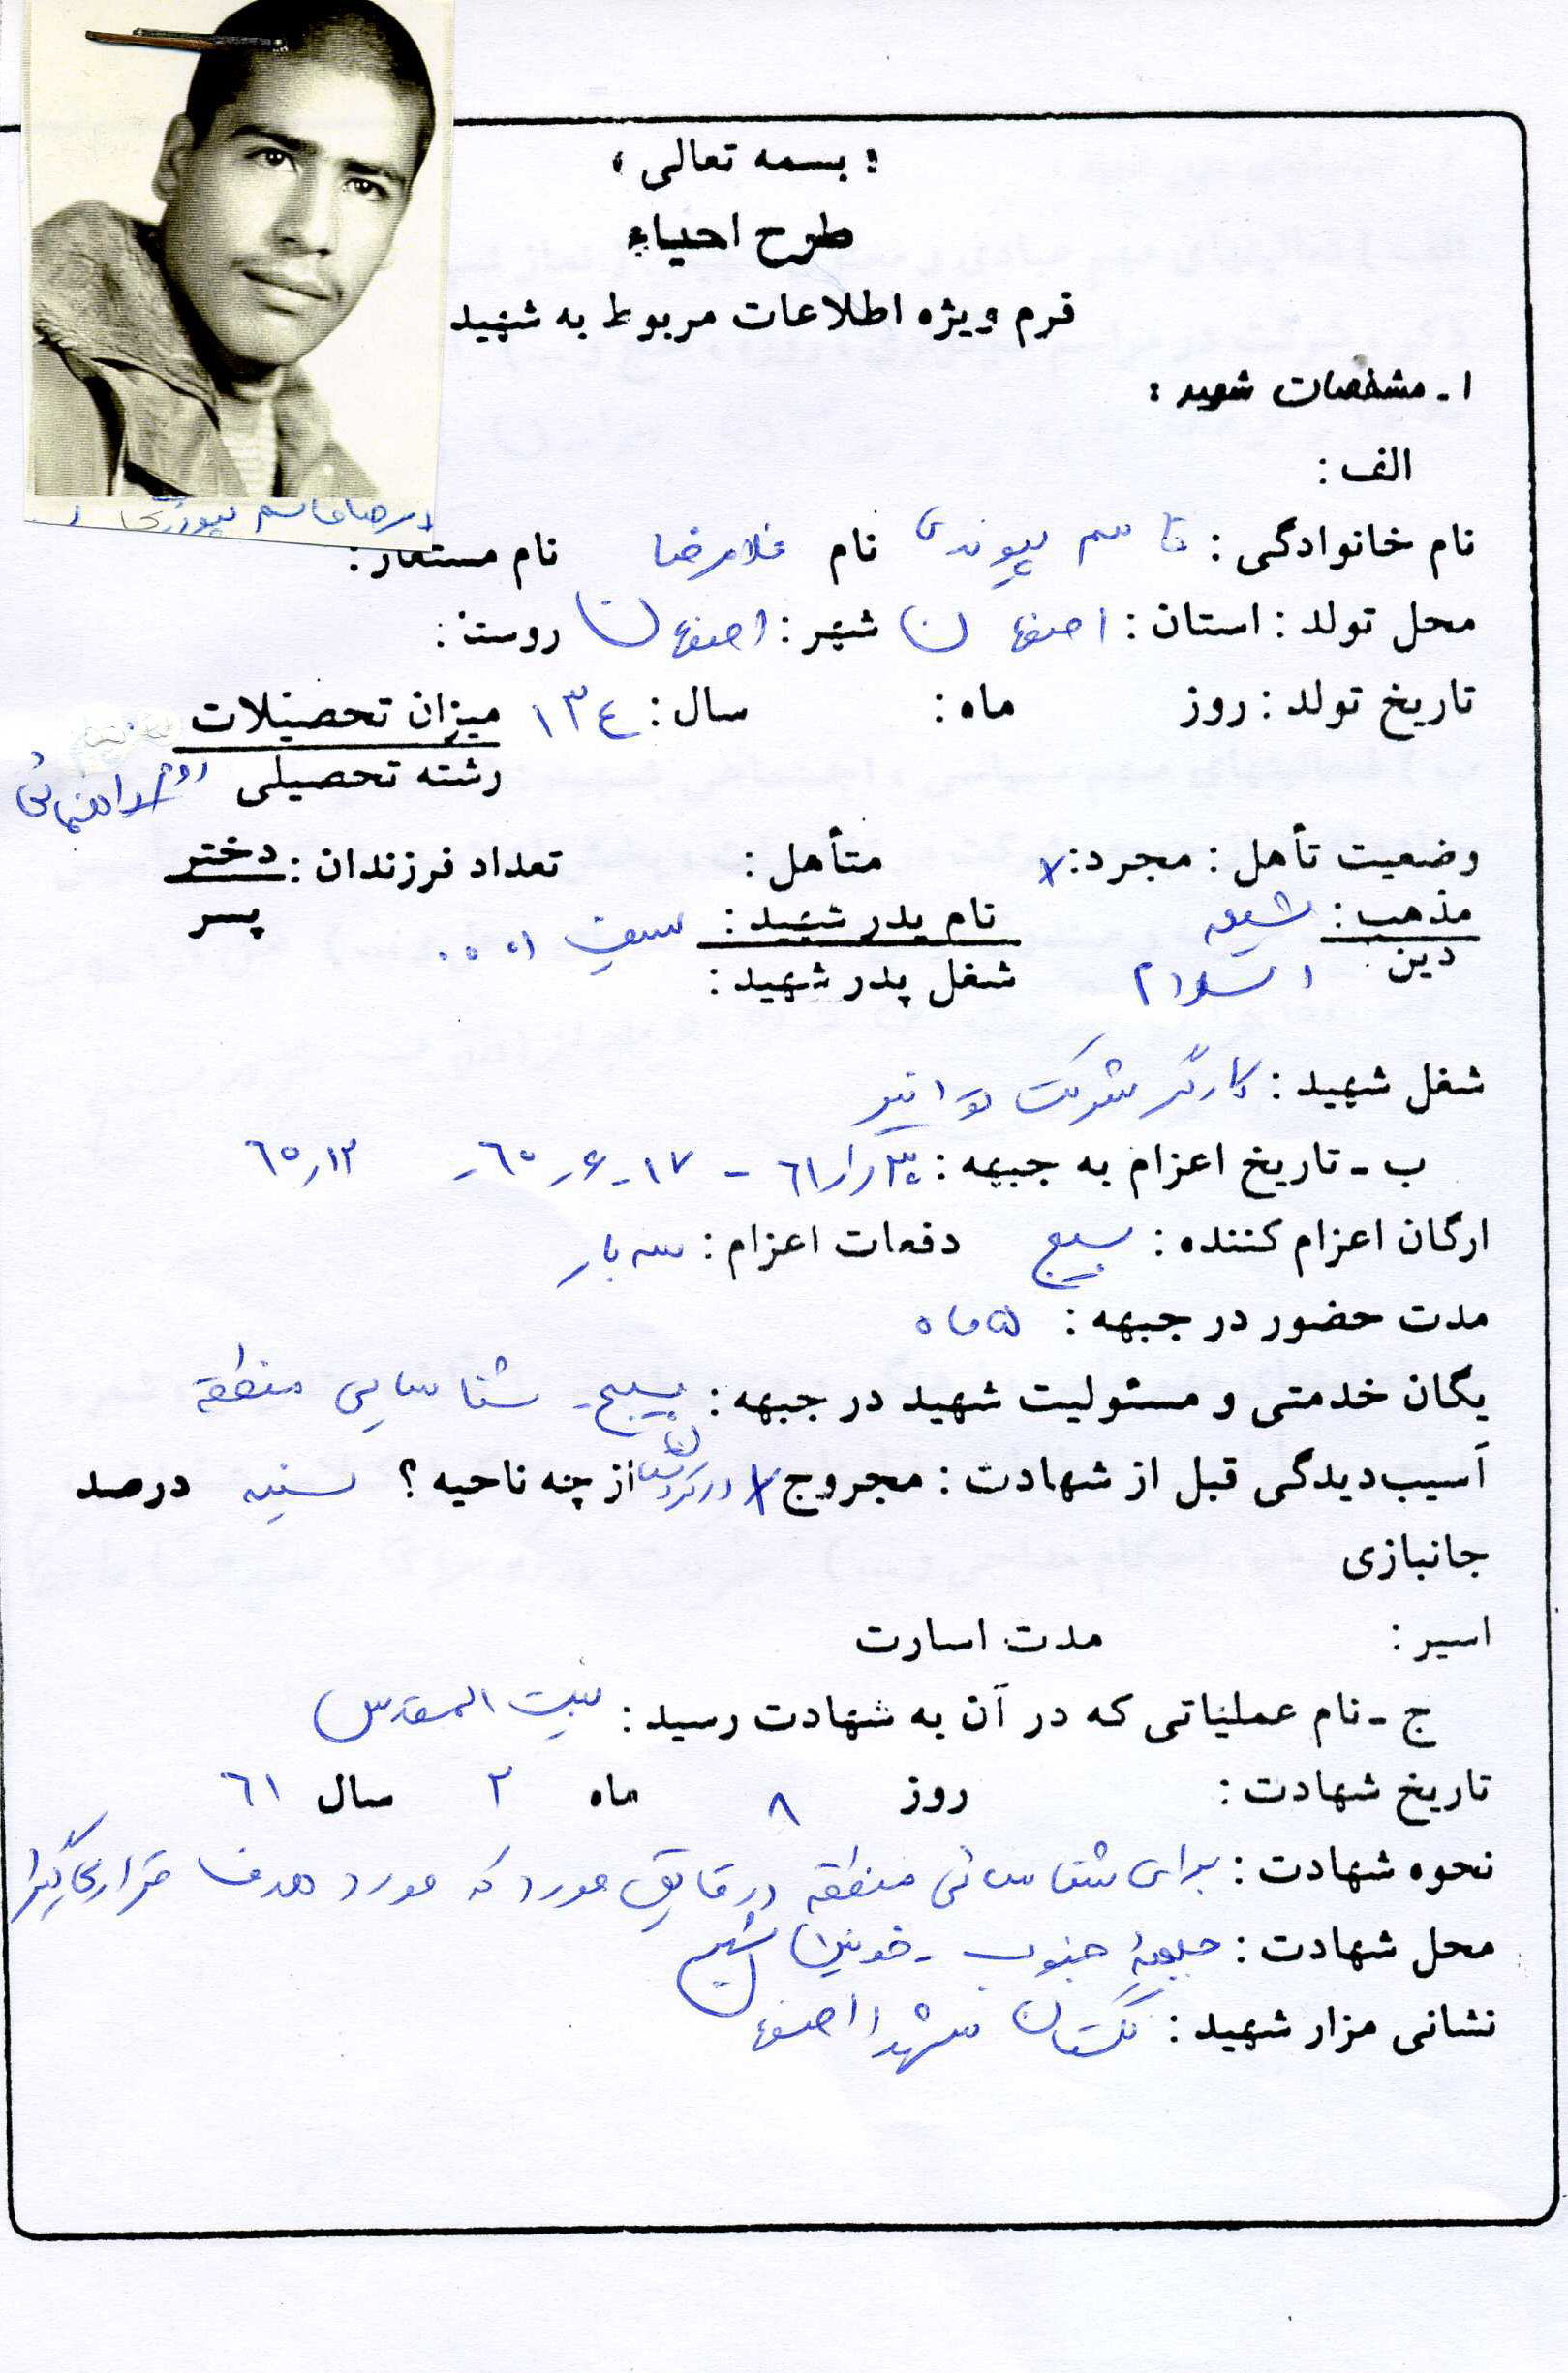 « بسمه تعالی »
طرح احیاء
فرم ویژه اطلاعات مربوط به شهید
۱ـ مشخصات شهید :
الف :
نام خانوادگی : قاسم پیوندی نام غلامرضا نام مستعار :
محل تولد : استان : اصفهان شهر : اصفهان روستا :
تاریخ تولد : روز ماه : سال : ۱۳٤ میزان تحصیلات
رشته تحصیلی راهنمائی
وضعیت تأهل : مجرد : x متأهل : تعداد فرزندان : دختر
پسر
مذهب : شیعه نام پدر شهید : سیف ا...
دین اسلام شغل پدر شهید :
شغل شهید : کارگر شرکت توانیر
ب ـ تاریخ اعزام به جبهه : ۳۰ر۱ر٦۱ - ۱۷-۶ر٦۰ - ٦۰ر۱۲
ارگان اعزام کننده : بسیج دفعات اعزام : سه بار
مدت حضور در جبهه : ۵ ماه
یگان خدمتی و مسئولیت شهید در جبهه : بسیج - شناسایی منطقه
آسیب‌دیدگی قبل از شهادت : مجروح x در کردستان از چه ناحیه ؟ سینه درصد
جانبازی
اسیر : مدت اسارت
ج ـ نام عملیاتی که در آن به شهادت رسید : بیت المقدس
تاریخ شهادت : روز ۸ ماه ۲ سال ٦۱
نحوه شهادت : برای شناسائی منطقه در قایق بوده که مورد هدف قرار
محل شهادت : جبهه جنوب - خونین شهر
نشانی مزار شهید : گلستان شهدا اصفهان